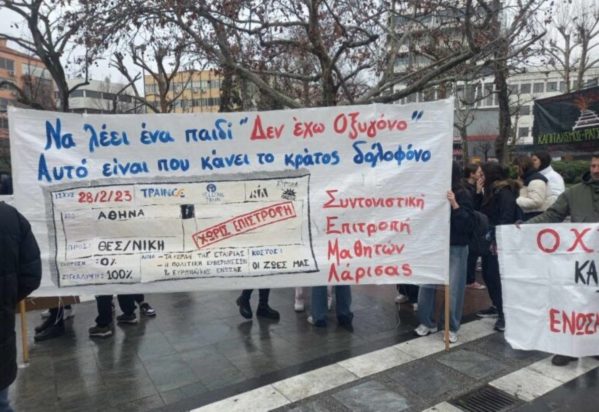 Να λέει ένα παιδί "Δεν έχω Οξυγόνο"
Αυτό είναι που κάνει το κράτος δολοφόνο
28/2/23
TRAINOSE
ΑΘΗΝΑ
ΘΕΣ/ΝΙΚΗ
ΧΩΡΙΣ ΕΠΙΣΤΡΟΦΗ
0%
ΣΥΓΚΑΛΥΨΗΣ 100%
ΚΟΣΤΟΣ:
ΟΙ ΖΩΕΣ ΜΑΣ
Συντονιστική
Επιτροπή
Μαθητών
Λάρισας
ΚΑΠΙΤΑΛΙΣΜΟΣ
ΟΧ
ΚΑ
ΕΝΩΣ